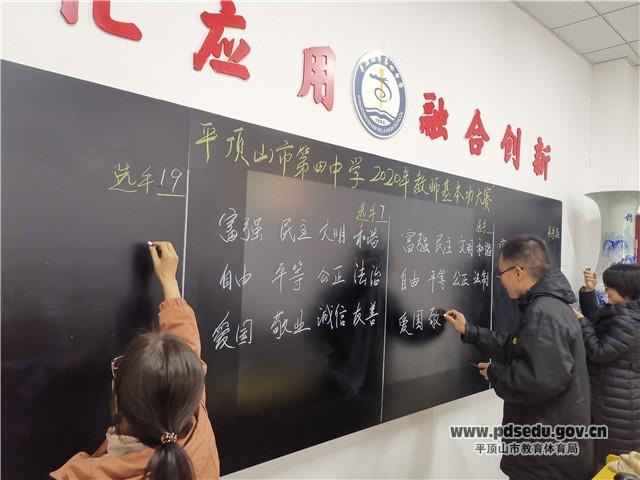 化 应 用 融合创新
平顶山市第四中学2020年教师基本功大赛
选手19
选手7
富强 民主 文明 和谐
自由 平等 公正 法治
爱国 敬业 诚信 友善
选手
富强 民主 文明 和谐
自由 平等 公正 法制
爱国 敬
www.pdsedu.gov.cn
平顶山市教育体育局